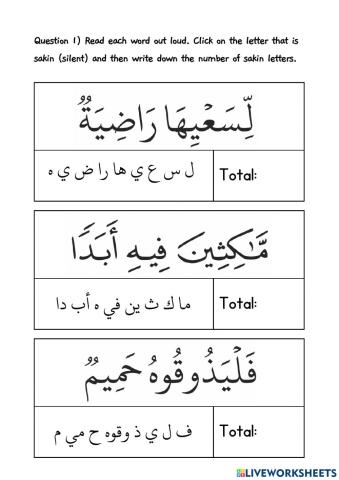 Question 1) Read each word out loud. Click on the letter that is
sakin (silent) and then write down the number of sakin letters.
لِّسَعْيِهَا رَاضِيَةٌ
ل س ع ي ها را ض ي ه
Total:
مَّـٰكِثِينَ فِيهِ أَبَدًا
ما ك ث ين في ه أب دا
Total:
فَلْيَذُوقُوهُ حَمِيمٌ
ف ل ي ذ وقوه ح مي م
Total:
LIVEWORKSHEETS